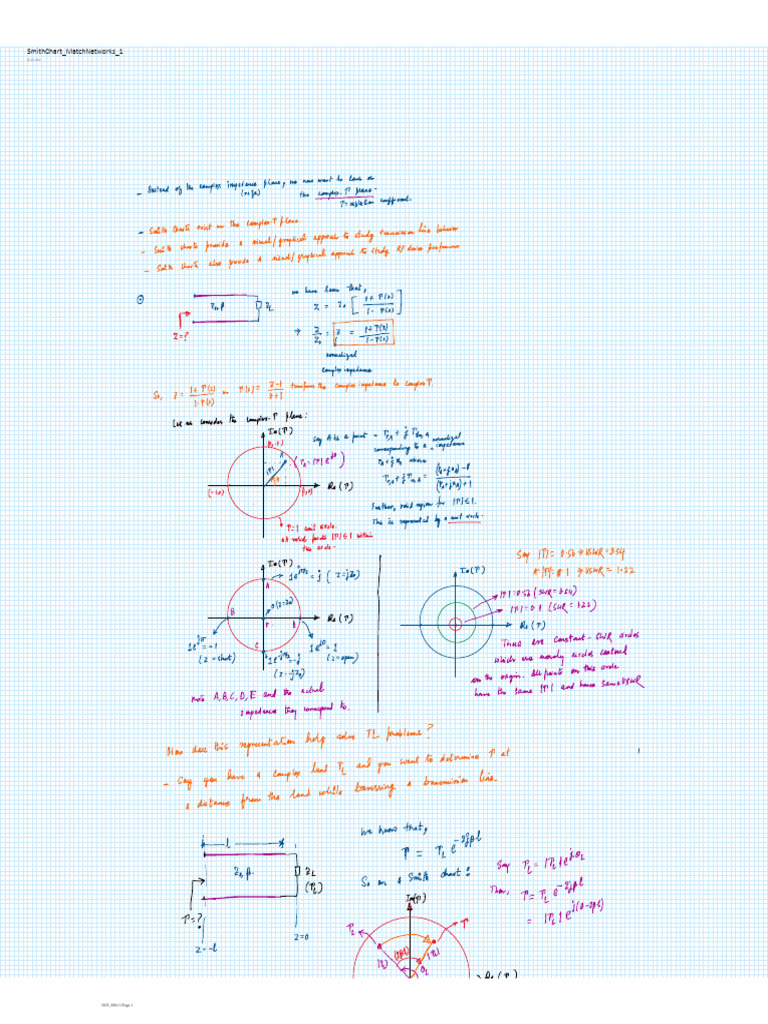 SmithChart_MatchNetworks_1
- Instead of the complex impedance plane, we now want to look on
(r+jx) the complex-Γ plane.
Γ = reflection coefficient.
- Smith Charts exist on the complex-Γ plane.
- Smith charts provide a visual/graphical approach to study transmission line behavior
- Smith charts also provide a visual/graphical approach to study RF device performance
Z0, β ZL
Z=?
We have seen that,
Z = Z0 [ 1+Γ(z) / 1-Γ(z) ]
→ Z/Z0 = z = 1+Γ(z) / 1-Γ(z)
normalized
complex impedance
So, z = 1+Γ(z) / 1-Γ(z) or Γ(z) = z-1 / z+1 transforms the complex impedance to complex Γ.
Let us consider the complex-Γ plane:
Im(Γ)
(0,+1)
A
|Γ|
(ΓA = |Γ| e^jθ)
(-1,0)
Re(Γ)
Γ=1 unit circle.
All valid points |Γ|≤1 within
this circle.
Say A is a point = Γr,A + j Γim,A
corresponding to a normalized impedance
rA + j xA where
Γr,A + j Γim,A = (rA+jxA)-1 / (rA+jxA)+1
Further, valid region for |Γ|≤1.
This is represented by a unit circle.
Im(Γ)
A
1e^jπ/2 = j (Z=jZ0)
B
0 (Z=Z0)
E
D
Re(Γ)
1e^jπ = -1
(Z=short)
C
1e^-jπ/2 = -j
(Z=-jZ0)
1e^j0 = 1
(Z=open)
Note A, B, C, D, E and the actual
impedances they correspond to.
Say |Γ| = 0.56 → VSWR = 3.54
& |Γ| = 0.1 → VSWR = 1.22
Im(Γ)
|Γ| = 0.56 (SWR = 3.54)
|Γ| = 0.1 (SWR = 1.22)
Re(Γ)
These are constant-SWR circles
which are merely circles centered
on the origin. All points on this circle
have the same |Γ| and hence same VSWR
How does this representation help solve TL problems?
- Say you have a complex load ΓL and you want to determine Γ at
a distance from the load while traversing a transmission line.
l
Z0, β.
ZL
(ΓL)
Γ=?
z=-l
z=0
We know that,
Γ = ΓL e^-2jβl
So on a Smith chart:
Say ΓL = |ΓL| e^jθL
Then, Γ = ΓL e^-2jβl
= |ΓL| e^j(θ-2βl)
Im(Γ)
ΓL
Γ
(2βl)
|ΓL|
|ΓL|
θL
Re(Γ)